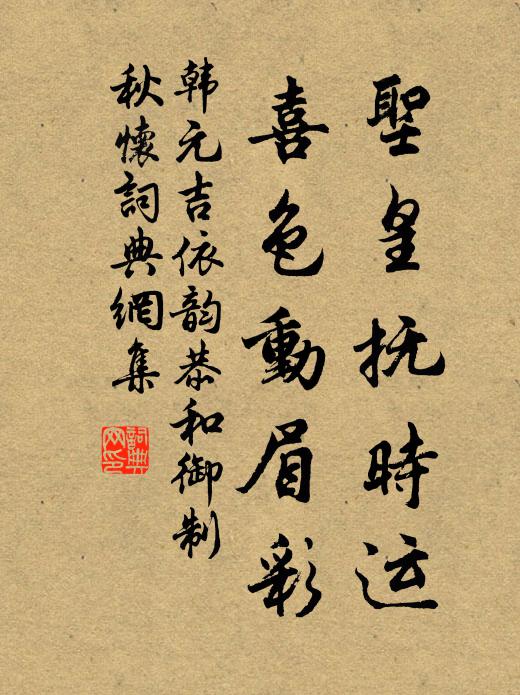 聖皇抚時运
喜色動眉彩
韩元吉依韵恭和御制
秋懷詞典網集
詞典网印